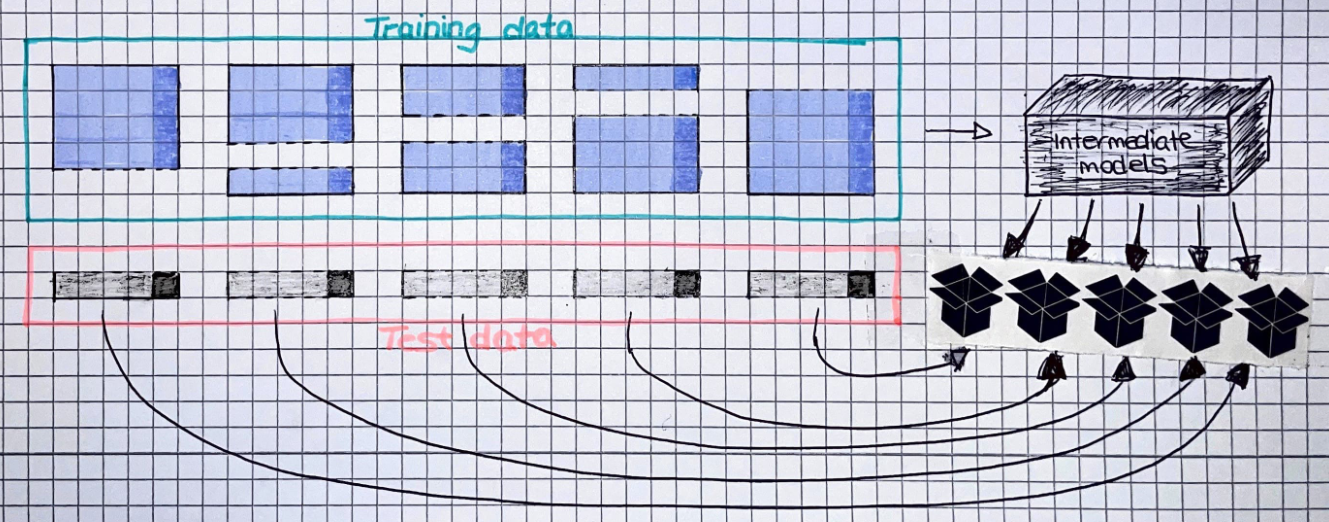 Training data
Intermediate
models
Test data